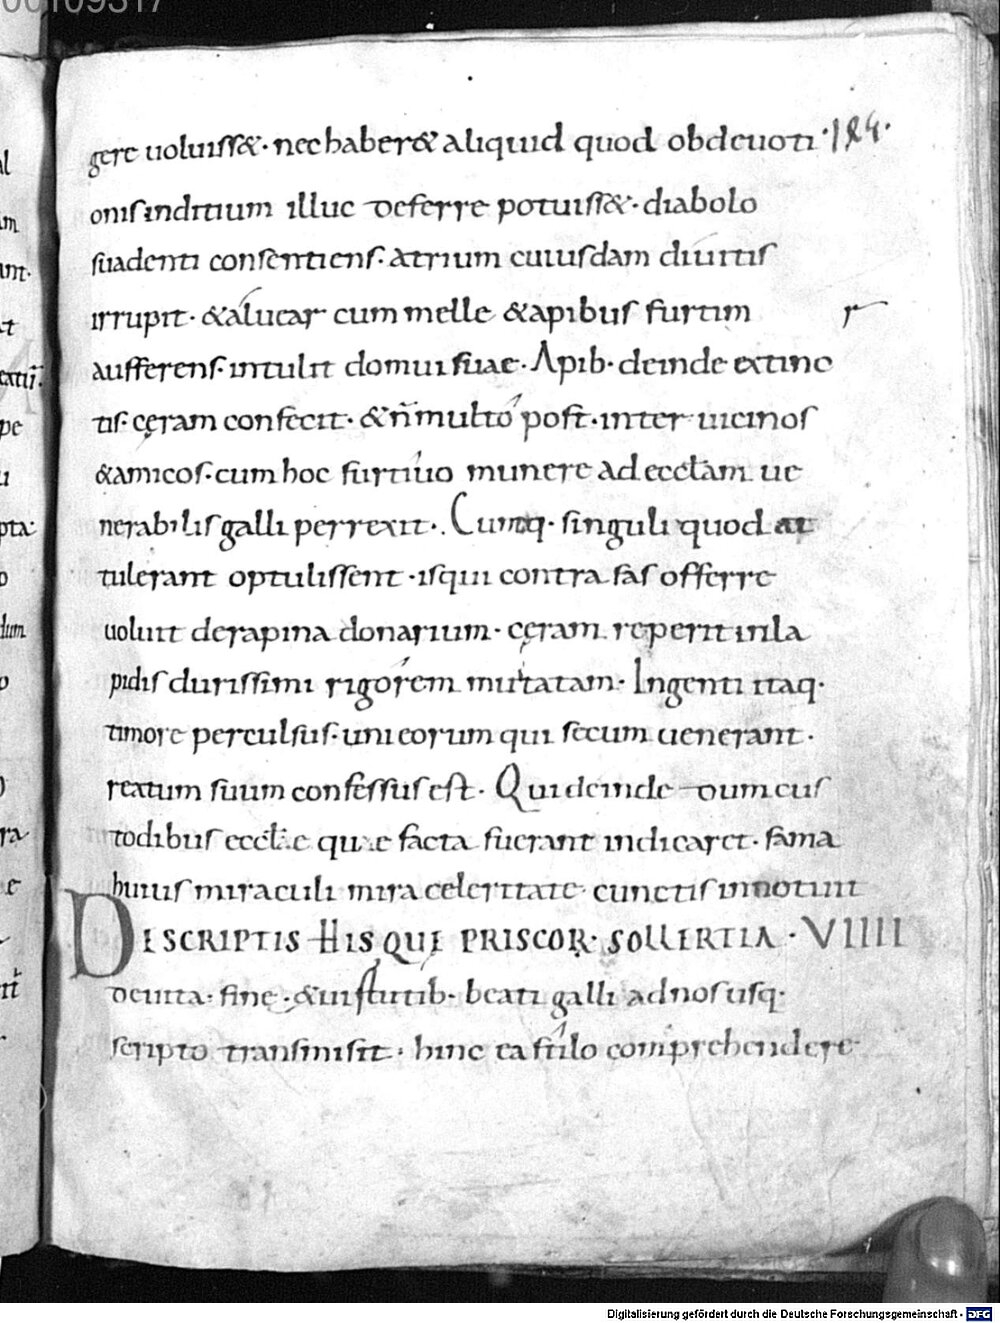 00109317
gere uoluiss&· nec haber& aliquid quod obdeuoti ·184·
onis inditium illuc deferre potuiss&· diabolo
suadenti consentiens· atrium cuiusdam diuitis
irrupit· &aluear cum melle &apibus furtim
aufferens· intulit domui suae· Apib· deinde extinc
tis· cęram confecit· &n̄ multo post· inter uicinos
&amicos· cum hoc furtiuo munere ad eccłam ue
nerabilis galli perrexit·. Cumq· singuli quod at
tulerant optulissent · isqui contra fas offerre
uoluit derapina donarium· cęram reperit inla
pidis durissimi rigorem mutatam· Ingenti itaq·
timore perculsus· uni eorum qui secum uenerant·
reatum suum confessus est· Qui deinde dum cus
todibus eccłae quae facta fuerant indicaret· fama
huius miraculi mira celeritate· cunctis innotuit
DESCRIPTIS HIS QUE PRISCOR· SOLLERTIA · VIIII
deuita· fine·&uirtutib· beati galli adnos usq·
scripto transmisit· hinc ea stilo comprehendere·
Digitalisierung gefördert durch die Deutsche Forschungsgemeinschaft - DFG